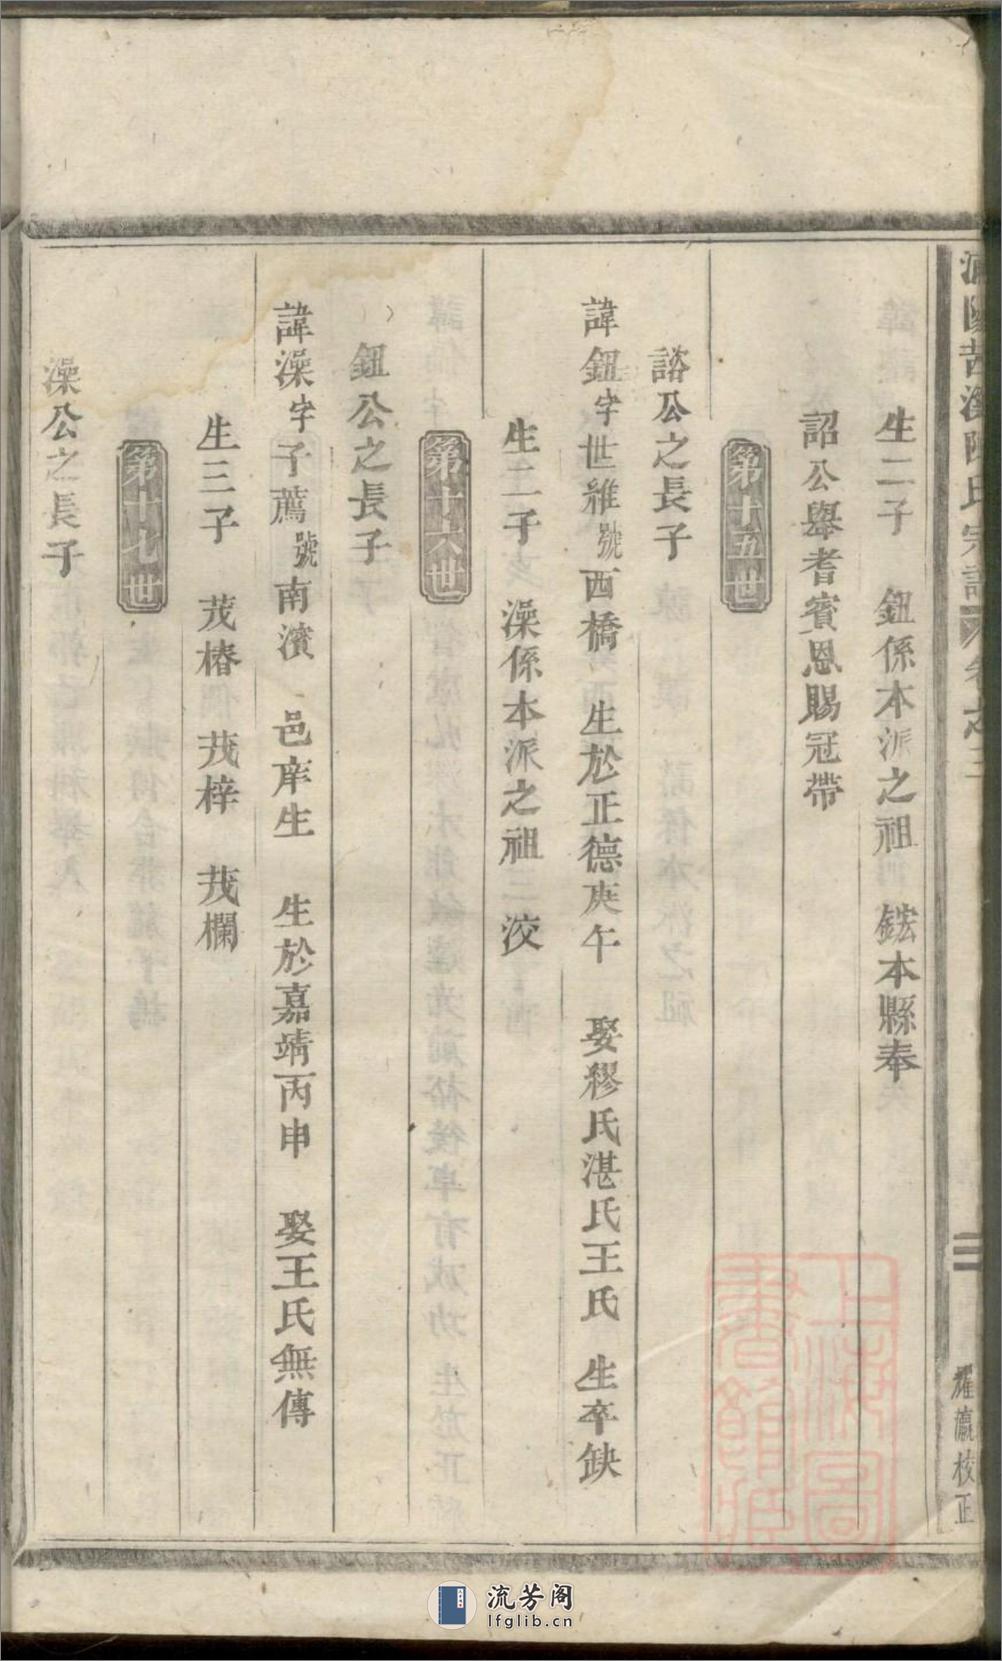 生二子　鈕係本派之祖　鋐本縣奉
詔公舉耆賓恩賜冠帶
第十五世
諮公之長子
諱鈕字世維號西橋　生於正德庚午　娶繆氏湛氏王氏　生卒缺
生二子　澡係本派之祖　洨
第十六世
鈕公之長子
諱澡字子薦號南濱　邑庠生　生於嘉靖丙申　娶王氏無傳
生三子　茂椿　茂梓　茂欄
第十七世
澡公之長子
宗譜　卷之三
三
耀瀛校正
上海圖書館藏
流芳阁
lfglib.cn